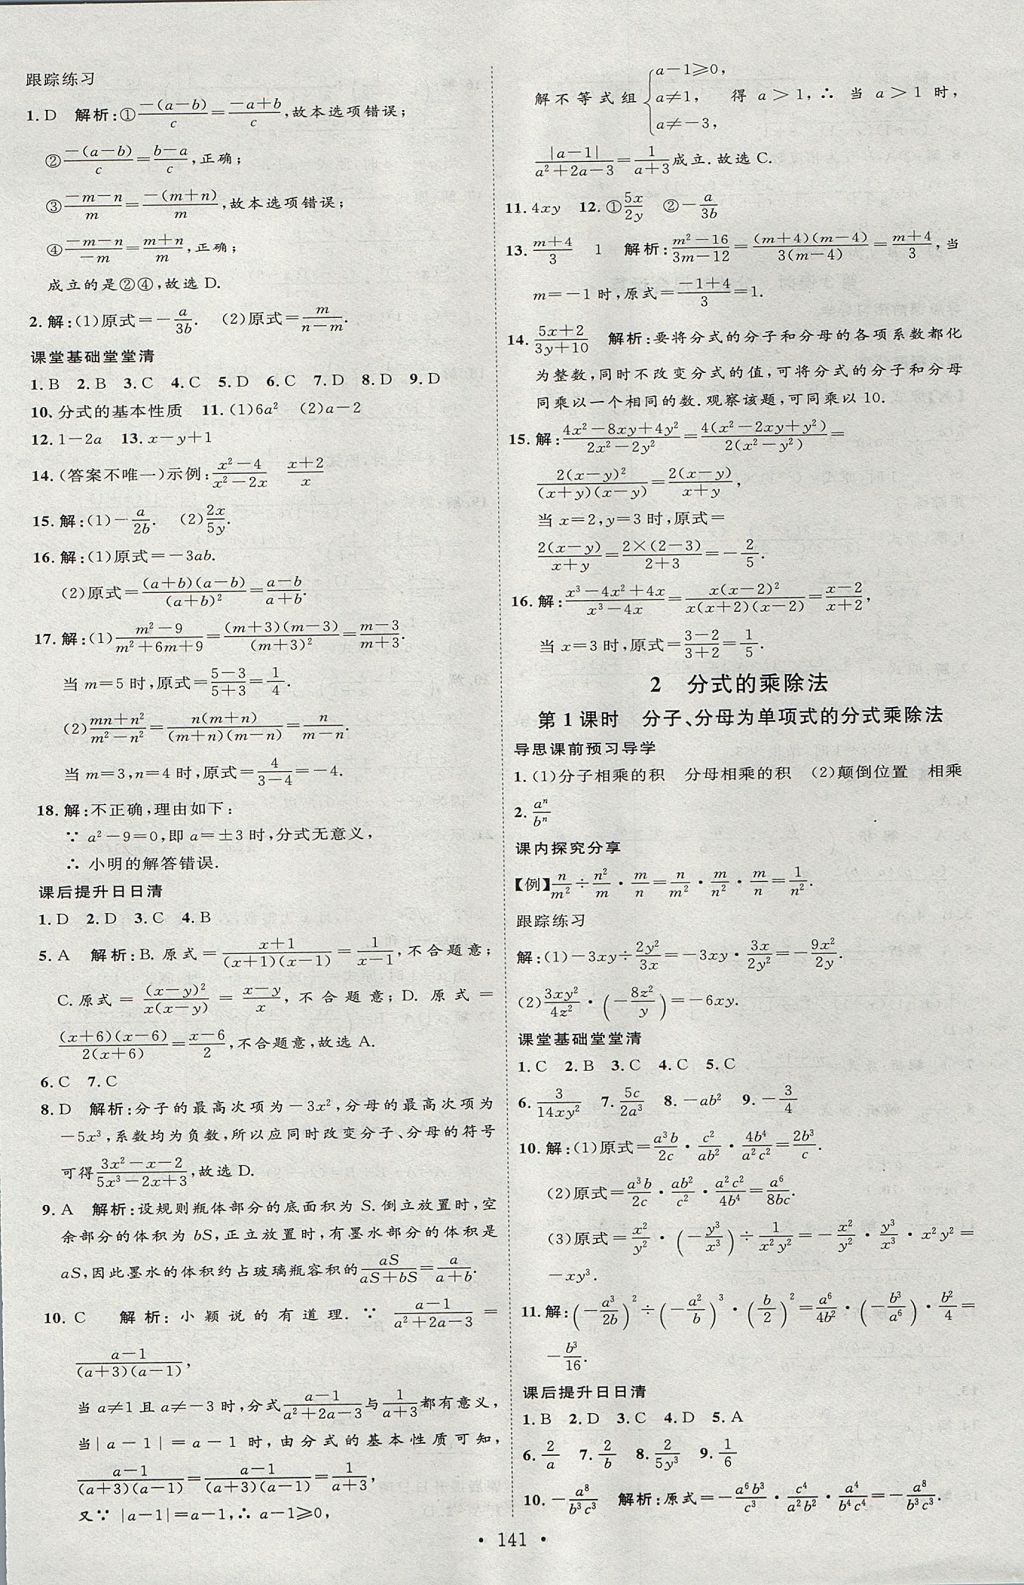 跟踪练习
1.D 解析:①$\frac{-(a-b)}{c}=\frac{-a+b}{c}$,故本选项错误;
②$\frac{-(a-b)}{c}=\frac{b-a}{c}$,正确;
③$\frac{-m-n}{m}=\frac{-(m+n)}{m}$,故本选项错误;
④$\frac{-m-n}{-m}=\frac{m+n}{m}$,正确;
成立的是②④,故选 D.
2.解:(1)原式=$-\frac{a}{3b}$. (2)原式=$\frac{m}{n-m}$.
课堂基础堂堂清
1.B 2.B 3.C 4.C 5.D 6.C 7.D 8.D 9.D
10.分式的基本性质 11.(1)$6a^2$ (2)$a-2$
12.$1-2a$ 13.$x-y+1$
14.(答案不唯一)示例:$\frac{x^2-4}{x^2-2x}$ $\frac{x+2}{x}$
15.解:(1)$-\frac{a}{2b}$. (2)$\frac{2x}{5y}$.
16.解:(1)原式=$-3ab$.
(2)原式=$\frac{(a+b)(a-b)}{(a+b)^2}=\frac{a-b}{a+b}$.
17.解:(1)$\frac{m^2-9}{m^2+6m+9}=\frac{(m+3)(m-3)}{(m+3)^2}=\frac{m-3}{m+3}$.
当 m=5 时,原式=$\frac{5-3}{5+3}=\frac{1}{4}$.
(2)$\frac{mn+n^2}{m^2-n^2}=\frac{n(m+n)}{(m+n)(m-n)}=\frac{n}{m-n}$.
当 m=3,n=4 时,原式=$\frac{4}{3-4}=-4$.
18.解:不正确,理由如下:
∵ $a^2-9=0$,即 a=±3 时,分式无意义,
∴ 小明的解答错误.
课后提升日日清
1.D 2.D 3.C 4.B
5.A 解析:B.原式=$\frac{x+1}{(x+1)(x-1)}=\frac{1}{x-1}$,不合题意;
C.原式=$\frac{(x-y)^2}{x(x-y)}=\frac{x-y}{x}$,不合题意;D.原式=
$\frac{(x+6)(x-6)}{2(x+6)}=\frac{x-6}{2}$,不合题意,故选 A.
6.C 7.C
8.D 解析:分子的最高次项为$-3x^2$,分母的最高次项为
$-5x^3$,系数均为负数,所以应同时改变分子、分母的符号
可得$\frac{3x^2-x-2}{5x^3-2x+3}$,故选 D.
9.A 解析:设规则瓶体部分的底面积为 S.倒立放置时,空
余部分的体积为 bS,正立放置时,有墨水部分的体积是
aS,因此墨水的体积约占玻璃瓶容积的$\frac{aS}{aS+bS}=\frac{a}{a+b}$.
10.C 解析:小颖说的有道理.∵ $\frac{a-1}{a^2+2a-3}$=
$\frac{a-1}{(a+3)(a-1)}$,
当 a≠1 且 a≠-3 时,分式$\frac{a-1}{a^2+2a-3}$与$\frac{1}{a+3}$都有意义,
当|a-1|=a-1 时,由分式的基本性质可知,
$\frac{a-1}{(a+3)(a-1)}=\frac{a-1}{(a+3)(a-1)}=\frac{1}{a+3}$,
又∵ |a-1|=a-1,∴ a-1≥0,
解不等式组$\begin{cases}a-1≥0,\\a≠1,\\a≠-3,\end{cases}$ 得 a>1,∴ 当 a>1 时,
$\frac{|a-1|}{a^2+2a-3}=\frac{1}{a+3}$成立.故选 C.
11.4xy 12.①$\frac{5x}{2y}$ ②$-\frac{a}{3b}$
13.$\frac{m+4}{3}$ 1 解析:$\frac{m^2-16}{3m-12}=\frac{(m+4)(m-4)}{3(m-4)}=\frac{m+4}{3}$,当
m=-1 时,原式=$\frac{-1+4}{3}=1$.
14.$\frac{5x+2}{3y+10}$ 解析:要将分式的分子和分母的各项系数都化
为整数,同时不改变分式的值,可将分式的分子和分母
同乘以一个相同的数.观察该题,可同乘以 10.
15.解:$\frac{4x^2-8xy+4y^2}{2x^2-2y^2}=\frac{4(x^2-2xy+y^2)}{2(x^2-y^2)}$=
$\frac{2(x-y)^2}{(x+y)(x-y)}=\frac{2(x-y)}{x+y}$,
当 x=2,y=3 时,原式=
$\frac{2(x-y)}{x+y}=\frac{2×(2-3)}{2+3}=-\frac{2}{5}$.
16.解:$\frac{x^3-4x^2+4x}{x^3-4x}=\frac{x(x-2)^2}{x(x+2)(x-2)}=\frac{x-2}{x+2}$,
当 x=3 时,原式=$\frac{3-2}{3+2}=\frac{1}{5}$.
2 分式的乘除法
第 1 课时 分子、分母为单项式的分式乘除法
导思课前预习导学
1.(1)分子相乘的积 分母相乘的积 (2)颠倒位置 相乘
2.$\frac{a^n}{b^n}$
课内探究分享
【例】$\frac{n}{m^2}÷\frac{n^2}{m}·\frac{m}{n}=\frac{n}{m^2}·\frac{m}{n^2}·\frac{m}{n}=\frac{1}{n^2}$.
跟踪练习
解:(1)$-3xy÷\frac{2y^2}{3x}=-3xy·\frac{3x}{2y^2}=-\frac{9x^2}{2y}$.
(2)$\frac{3xy^2}{4z^2}·\left(-\frac{8z^2}{y}\right)=-6xy$.
课堂基础堂堂清
1.C 2.B 3.C 4.C 5.C
6.$\frac{3}{14xy^2}$ 7.$\frac{5c}{2a^3}$ 8.$-ab^2$ 9.$-\frac{3}{4}$
10.解:(1)原式=$\frac{a^3b}{2c}·\frac{c^2}{ab}·\frac{4b^4}{a^2c^2}=\frac{2b^3}{c}$.
(2)原式=$\frac{a^3b}{2c}·\frac{ab}{c^2}·\frac{a^2c^2}{4b^4}=\frac{a^6}{8bc}$.
(3)原式=$\frac{x^2}{y^2}·\left(-\frac{y^3}{x^3}\right)÷\frac{1}{x^2y^2}=-\frac{x^2}{y^2}·\frac{y^3}{x^3}·x^2y^2$=
$-xy^3$.
11.解:$\left(-\frac{a^3}{2b}\right)^2÷\left(-\frac{a^2}{b}\right)^3·\left(\frac{b}{2}\right)^2=\frac{a^6}{4b^2}·\left(-\frac{b^3}{a^6}\right)·\frac{b^2}{4}$=
$-\frac{b^3}{16}$.
课后提升日日清
1.B 2.D 3.C 4.D 5.A
6.$\frac{2}{a}$ 7.$\frac{2}{b}$ 8.$\frac{2}{5y^3}$ 9.$\frac{1}{6}$
10.$-\frac{a^8}{b^3c^3}$ 解析:原式=$-\frac{a^6b^3}{c^3}·\frac{c^4}{a^2b^2}·\frac{a^4}{b^4c^4}=-\frac{a^8}{b^3c^3}$.
• 141 •